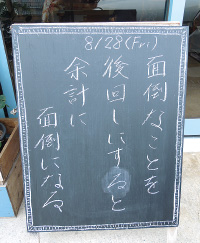 8/28(Fri)
面倒なことを
後回しにすると
余計に
面倒になる